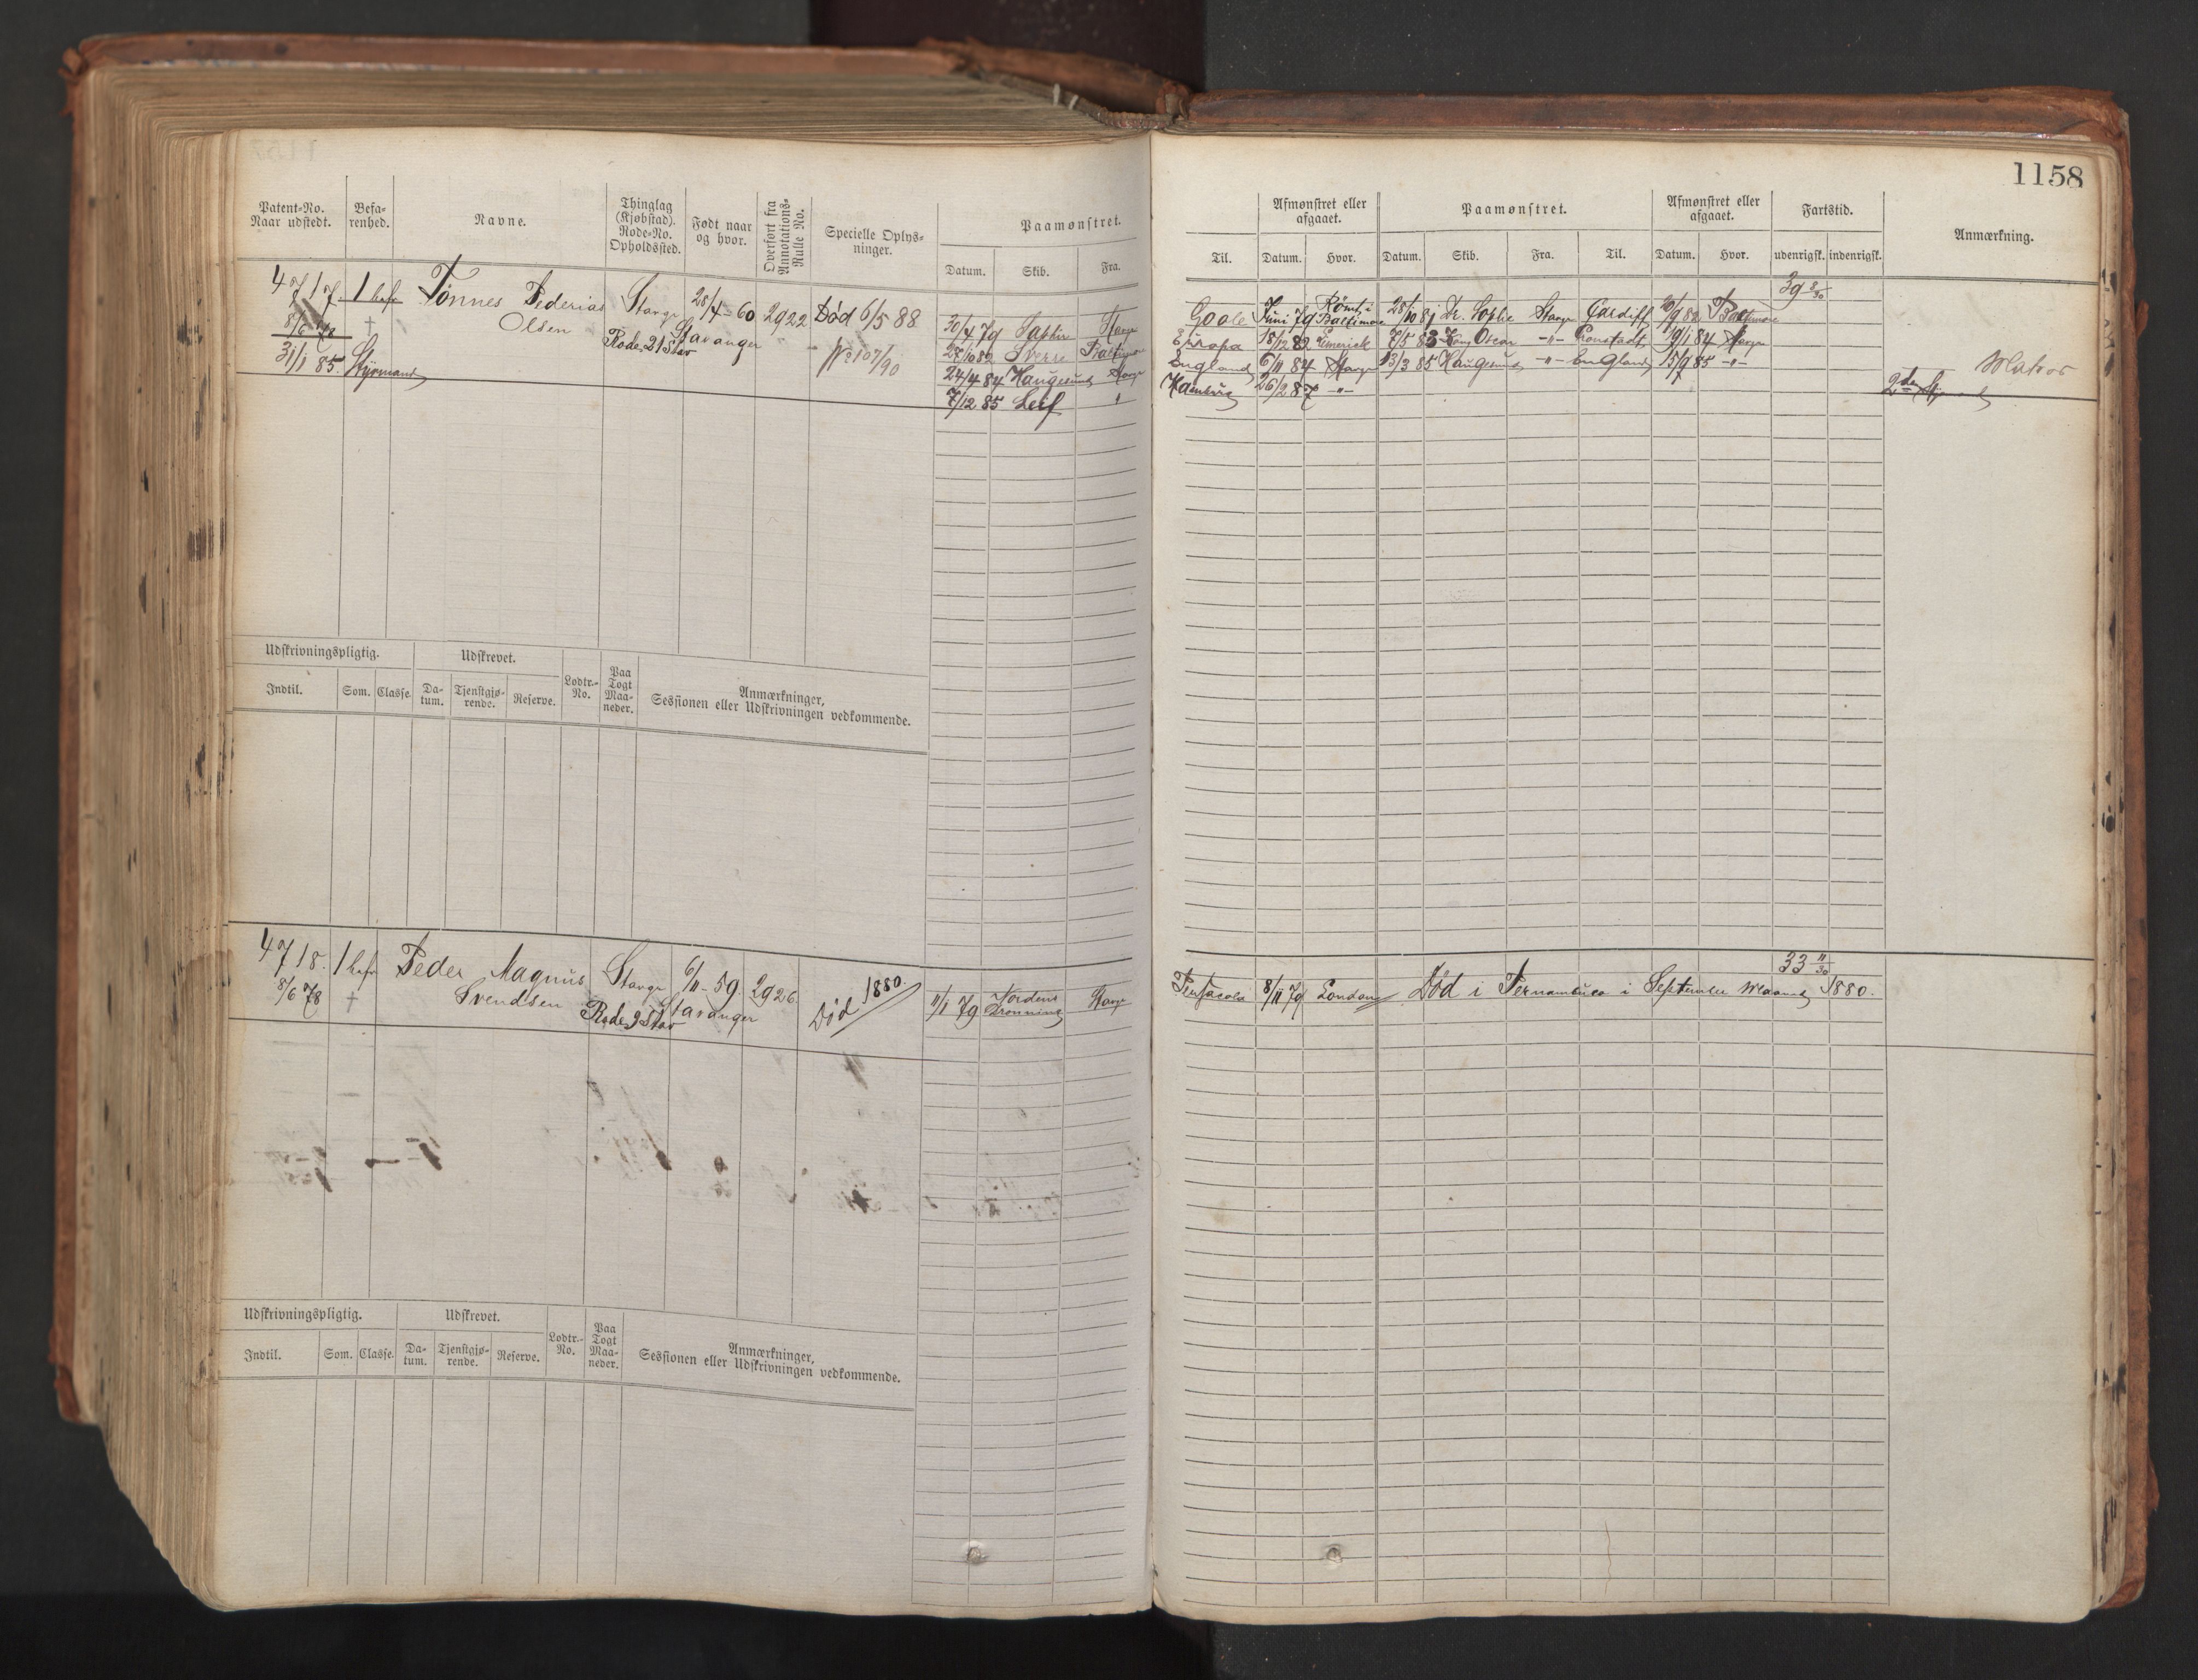 1158
Patent-No. Naar udstedt.
Befarenhed.
Navne.
Thinglag (Kjøbstad). Rode-No. Opholdssted.
Født naar og hvor.
Overført fra Annotations-Rulle No.
Specielle Oplysninger.
Paamønstret.
Datum. Skib. Fra.
Til.
Afmønstret eller afgaaet.
Datum. Hvor.
Paamønstret.
Datum. Skib. Fra. Til.
Afmønstret eller afgaaet.
Datum. Hvor.
Fartstid.
udenrigsk. indenrigsk.
Anmærkning.
4717. 1 bef Tønnes Pederias Olsen
8/6 78
31/1 85. Styrmand
Stavgr 28/4-60 2922 Død 6/5 88
Stavanger
Rode 21 Stav
No 107/90
39 8/30
30/4 79 Stavgr Goole Juni 79 Rømt i Baltimore 28/10 81 Dr. Sophie Stavgr Cardiff 82 Baltimore
28/10 82 Sverre Baltimore Europa 18/12 82 Limerick 7/5 83 Kong Oscar -"- Cronstadt 19/1 84 Stavgr
24/4 84 Haugesund Stavgr England 6/11 84 Stavgr 13/3 85 Haugesund -"- England 15/9 85 -"-
7/12 85 Leif " Hamburg 26/2 87 -"-
Matros
2den Styrmand
Udskrivningspligtig.
Udskrevet.
Lodtr.-No.
Paa Togt Maaneder.
Anmærkninger, Sessionen eller Udskrivningen vedkommende.
Indtil. Som. Classe. Datum. Tjenstgjørende. Reserve.
4718. 1 bef Peder Magnus Svendsen
8/6 78
Stavgr 6/11-59. 2926. Død 1880.
Stavanger
Rode 9 Stav
33 11/30
11/1 79 Nordens Dronning Stavgr Pensacola 8/11 79 London Død i Pernambuco i September Maaned 1880.
Udskrivningspligtig.
Udskrevet.
Lodtr.-No.
Paa Togt Maaneder.
Anmærkninger, Sessionen eller Udskrivningen vedkommende.
Indtil. Som. Classe. Datum. Tjenstgjørende. Reserve.